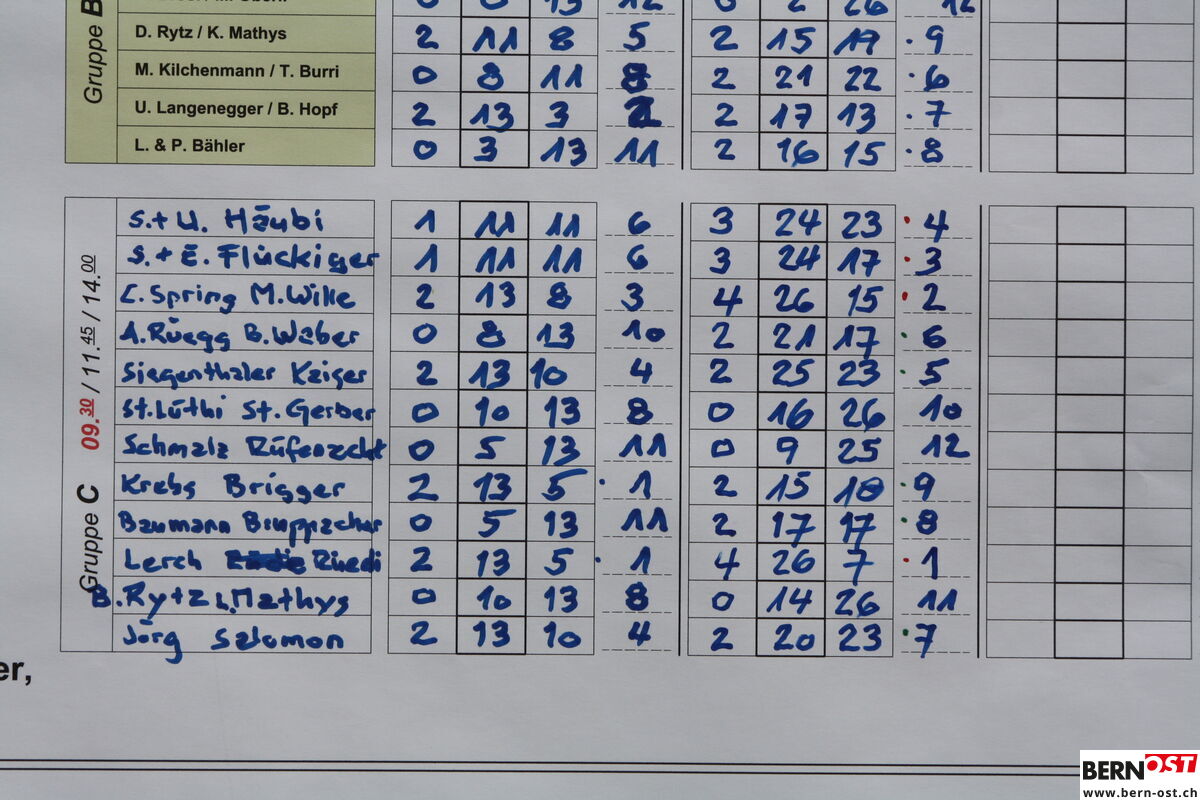 0 8 13 12 0 2 26 12
Gruppe B
D. Rytz / K. Mathys 2 11 8 5 2 15 19 · 9
M. Kilchenmann / T. Burri 0 8 11 8 2 21 22 · 6
U. Langenegger / B. Hopf 2 13 3 2 2 17 13 · 7
L. & P. Bähler 0 3 13 11 2 16 15 · 8
Gruppe C 09.30 / 11.45 / 14.00
S.+U. Häubi 1 11 11 6 3 24 23 · 4
S.+E. Flückiger 1 11 11 6 3 24 17 · 3
C. Spring M. Wilke 2 13 8 3 4 26 15 · 2
A. Rüegg B. Weber 0 8 13 10 2 21 17 · 6
Siegenthaler Kaiser 2 13 10 4 2 25 23 · 5
St. Lüthi St. Gerber 0 10 13 8 0 16 26 10
Schmalz Rüfenacht 0 5 13 11 0 9 25 12
Krebs Brigger 2 13 5 · 1 2 15 18 · 9
Baumann Bruppacher 0 5 13 11 2 17 17 · 8
Lerch Riedi 2 13 5 · 1 4 26 7 · 1
B. Rytz L. Mathys 0 10 13 8 0 14 26 11
Jörg Salomon 2 13 10 4 2 20 23 · 7
er,
BERNOST
www.bern-ost.ch